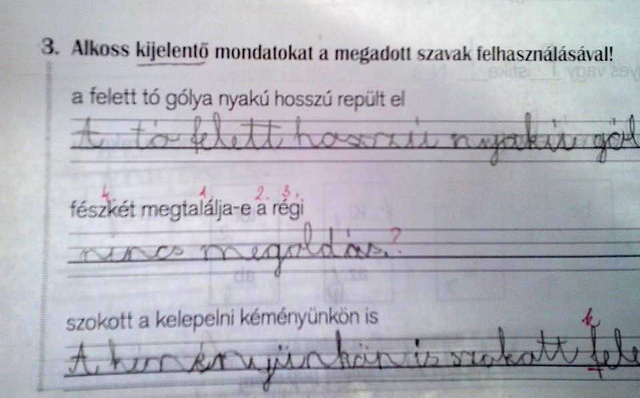 3. Alkoss kijelentő mondatokat a megadott szavak felhasználásával!
a felett tó gólya nyakú hosszú repült el
A tó felett hosszú nyakú gól
4. 1. 2. 3.
fészkét megtalálja-e a régi
nincs megoldás. ?
szokott a kelepelni kéményünkön is
k
A kéményünkön is szokott fele